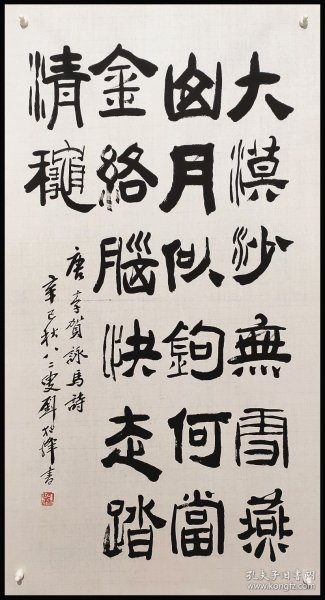 大漠沙無雪燕
山月似鉤何當
金絡腦快走踏
清龝
唐李賀詠馬詩
辛巳秋八二叟劉書
孔夫子旧书网